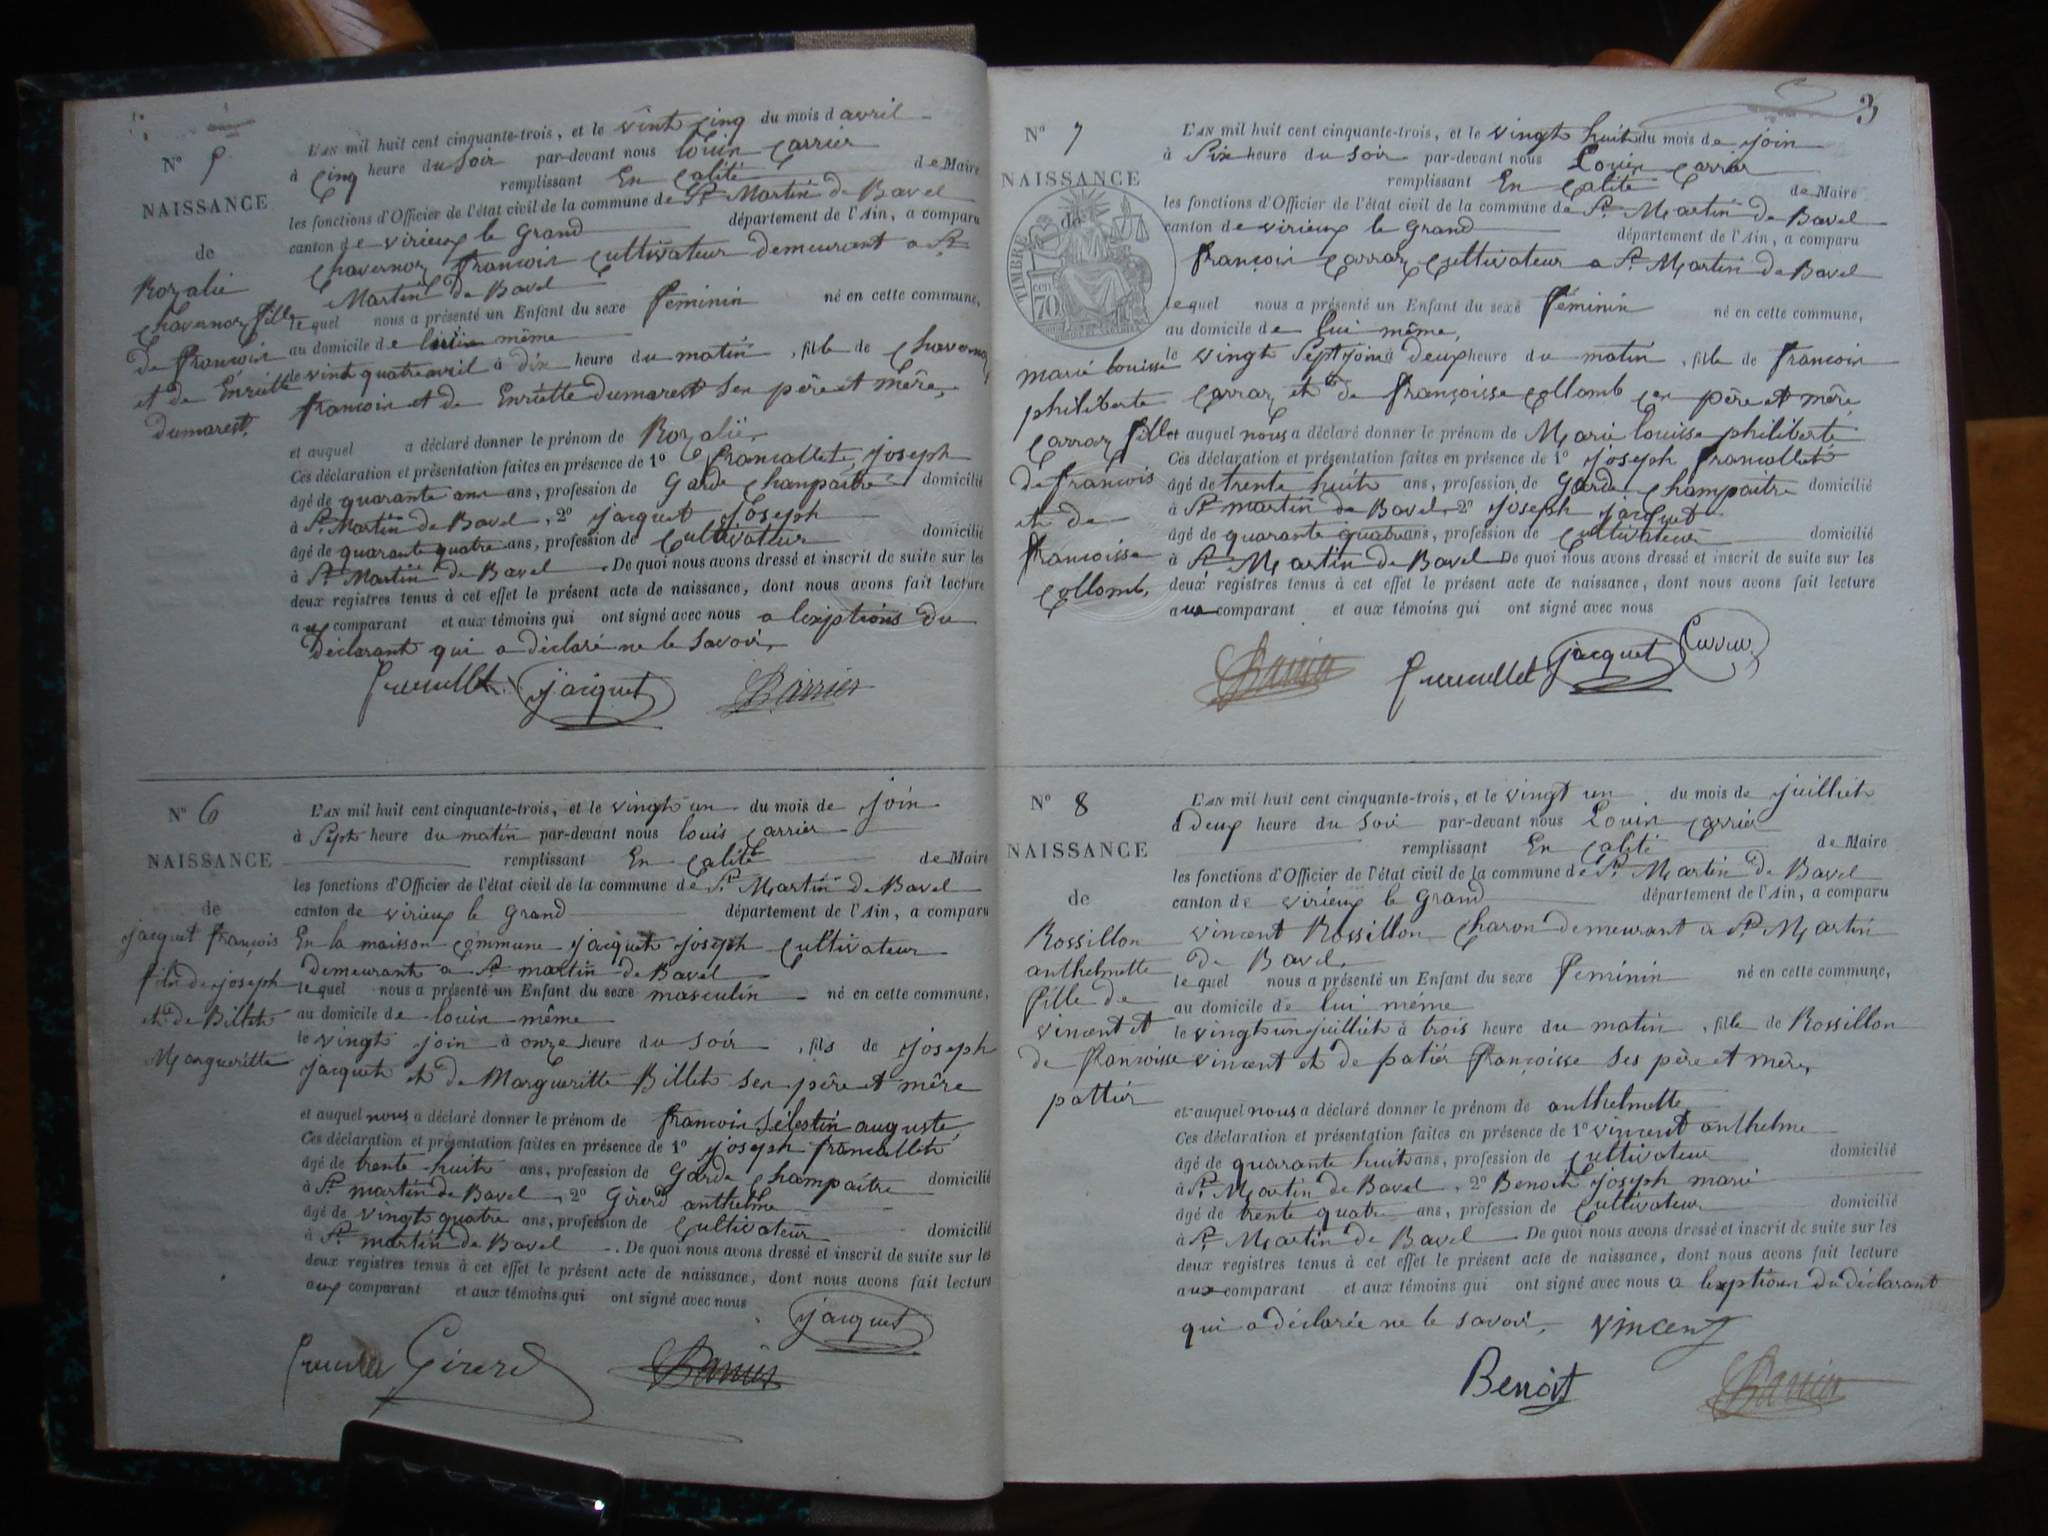 N° 5
NAISSANCE
de
Rozalie
Chavernoz fille
de françois
et de Enriette
dumarest.
L'AN mil huit cent cinquante-trois, et le vint cinq du mois d avril
à cinq heure du soir par-devant nous louis Carrier
remplissant En Calité de Maire
les fonctions d'Officier de l'état civil de la commune de St Martin de Bavel
canton de virieux le Grand département de l'Ain, a comparu
Chavernoz françois Cultivateur demeurant a St
Martin de Bavel
lequel nous a présenté un Enfant du sexe Féminin né en cette commune,
au domicile de lui même
le vint quatre avril à dix heure du matin, fille de Chavernoz
françois et de Enriette dumarest Ses père et mère,
et auquel a déclaré donner le prénom de Rozalie,
Ces déclaration et présentation faites en présence de 1° francallet, joseph
âgé de quarante ans ans, profession de Garde Chanpaitre domicilié
à St Martin de Bavel, 2° jacquet joseph
âgé de quarante quatre ans, profession de Cultivateur domicilié
à St Martin de Bavel. De quoi nous avons dressé et inscrit de suite sur les
deux registres tenus à cet effet le présent acte de naissance, dont nous avons fait lecture
aux comparant et aux témoins qui ont signé avec nous a lexptions du
Déclarant qui a déclaré ne le Savoir,
jacquet
N° 6
NAISSANCE
de
jacquet françois
fils de joseph
et de Billet
Margueritte
L'AN mil huit cent cinquante-trois, et le vingt un du mois de join
à Sept heure du matin par-devant nous louis Carrier
remplissant En Calité de Maire
les fonctions d'Officier de l'état civil de la commune de St Martin de Bavel
canton de virieux le Grand département de l'Ain, a comparu
En la maison Commune jacquet joseph Cultivateur
demeurant a St martin de Bavel
lequel nous a présenté un Enfant du sexe masculin né en cette commune,
au domicile de même
le vingt join à onze heure du Soir, fils de joseph
jacquet et de Margueritte Billet Ses père et mère
et auquel nous a déclaré donner le prénom de françois Sélestin auguste,
Ces déclaration et présentation faites en présence de 1° joseph francallet
âgé de trente huit ans, profession de Garde Champaitre domicilié
à St martin de Bavel, 2° Girerd anthelme
âgé de vingt quatre ans, profession de Cultivateur domicilié
à St martin de Bavel. De quoi nous avons dressé et inscrit de suite sur les
deux registres tenus à cet effet le présent acte de naissance, dont nous avons fait lecture
aux comparant et aux témoins qui ont signé avec nous
jacquet
Girerd
3
N° 7
NAISSANCE
de
TIMBRE
70 cen
marie louisse
philiberte
Carraz fille
de françois
et de
francoisse
Collomb,
L'AN mil huit cent cinquante-trois, et le vingt huit du mois de join
à Six heure du Soir par-devant nous Louis Carrier
remplissant En Calité de Maire
les fonctions d'Officier de l'état civil de la commune de St Martin de Bavel
canton de virieux le Grand département de l'Ain, a comparu
françois Carraz Cultivateur a St Martin de Bavel
lequel nous a présenté un Enfant du sexe Féminin né en cette commune,
au domicile de lui même,
le vingt Sept join à deux heure du matin, fille de françois
Carraz et de françoisse Collomb Ses père et mère
et auquel nous a déclaré donner le prénom de Marie louisse philiberte
Ces déclaration et présentation faites en présence de 1° joseph francallet
âgé de trente huit ans, profession de Garde Champaitre domicilié
à St martin de Bavel, 2° joseph jacquet
âgé de quarante quatre ans, profession de Cultivateur domicilié
à St Martin de Bavel De quoi nous avons dressé et inscrit de suite sur les
deux registres tenus à cet effet le présent acte de naissance, dont nous avons fait lecture
aux comparant et aux témoins qui ont signé avec nous
jacquet
N° 8
NAISSANCE
de
Rossillon
anthelmette
Fille de
vincent et
de francoisse
pattier
L'AN mil huit cent cinquante-trois, et le vingt un du mois de juilliet
à deux heure du Soir par-devant nous Louis Carrier
remplissant En Calité de Maire
les fonctions d'Officier de l'état civil de la commune de St Martin de Bavel
canton de virieux le Grand département de l'Ain, a comparu
vincent Rossillon Charon demeurant a St Martin
de Bavel,
lequel nous a présenté un Enfant du sexe Feminin né en cette commune,
au domicile de lui même
le vingt un juilliet à trois heure du matin, fille de Rossillon
vincent et de patier françoisse Ses père et mère,
et auquel nous a déclaré donner le prénom de anthelmette
Ces déclaration et présentation faites en présence de 1° vincent anthelme
âgé de quarante huit ans, profession de Cultivateur domicilié
à St Martin de Bavel, 2° Benoit joseph marie
âgé de trente quatre ans, profession de Cultivateur domicilié
à St Martin de Bavel De quoi nous avons dressé et inscrit de suite sur les
deux registres tenus à cet effet le présent acte de naissance, dont nous avons fait lecture
aux comparant et aux témoins qui ont signé avec nous a lexptioun du déclarant
qui a déclarée ne le savoir, vincent
Benoit